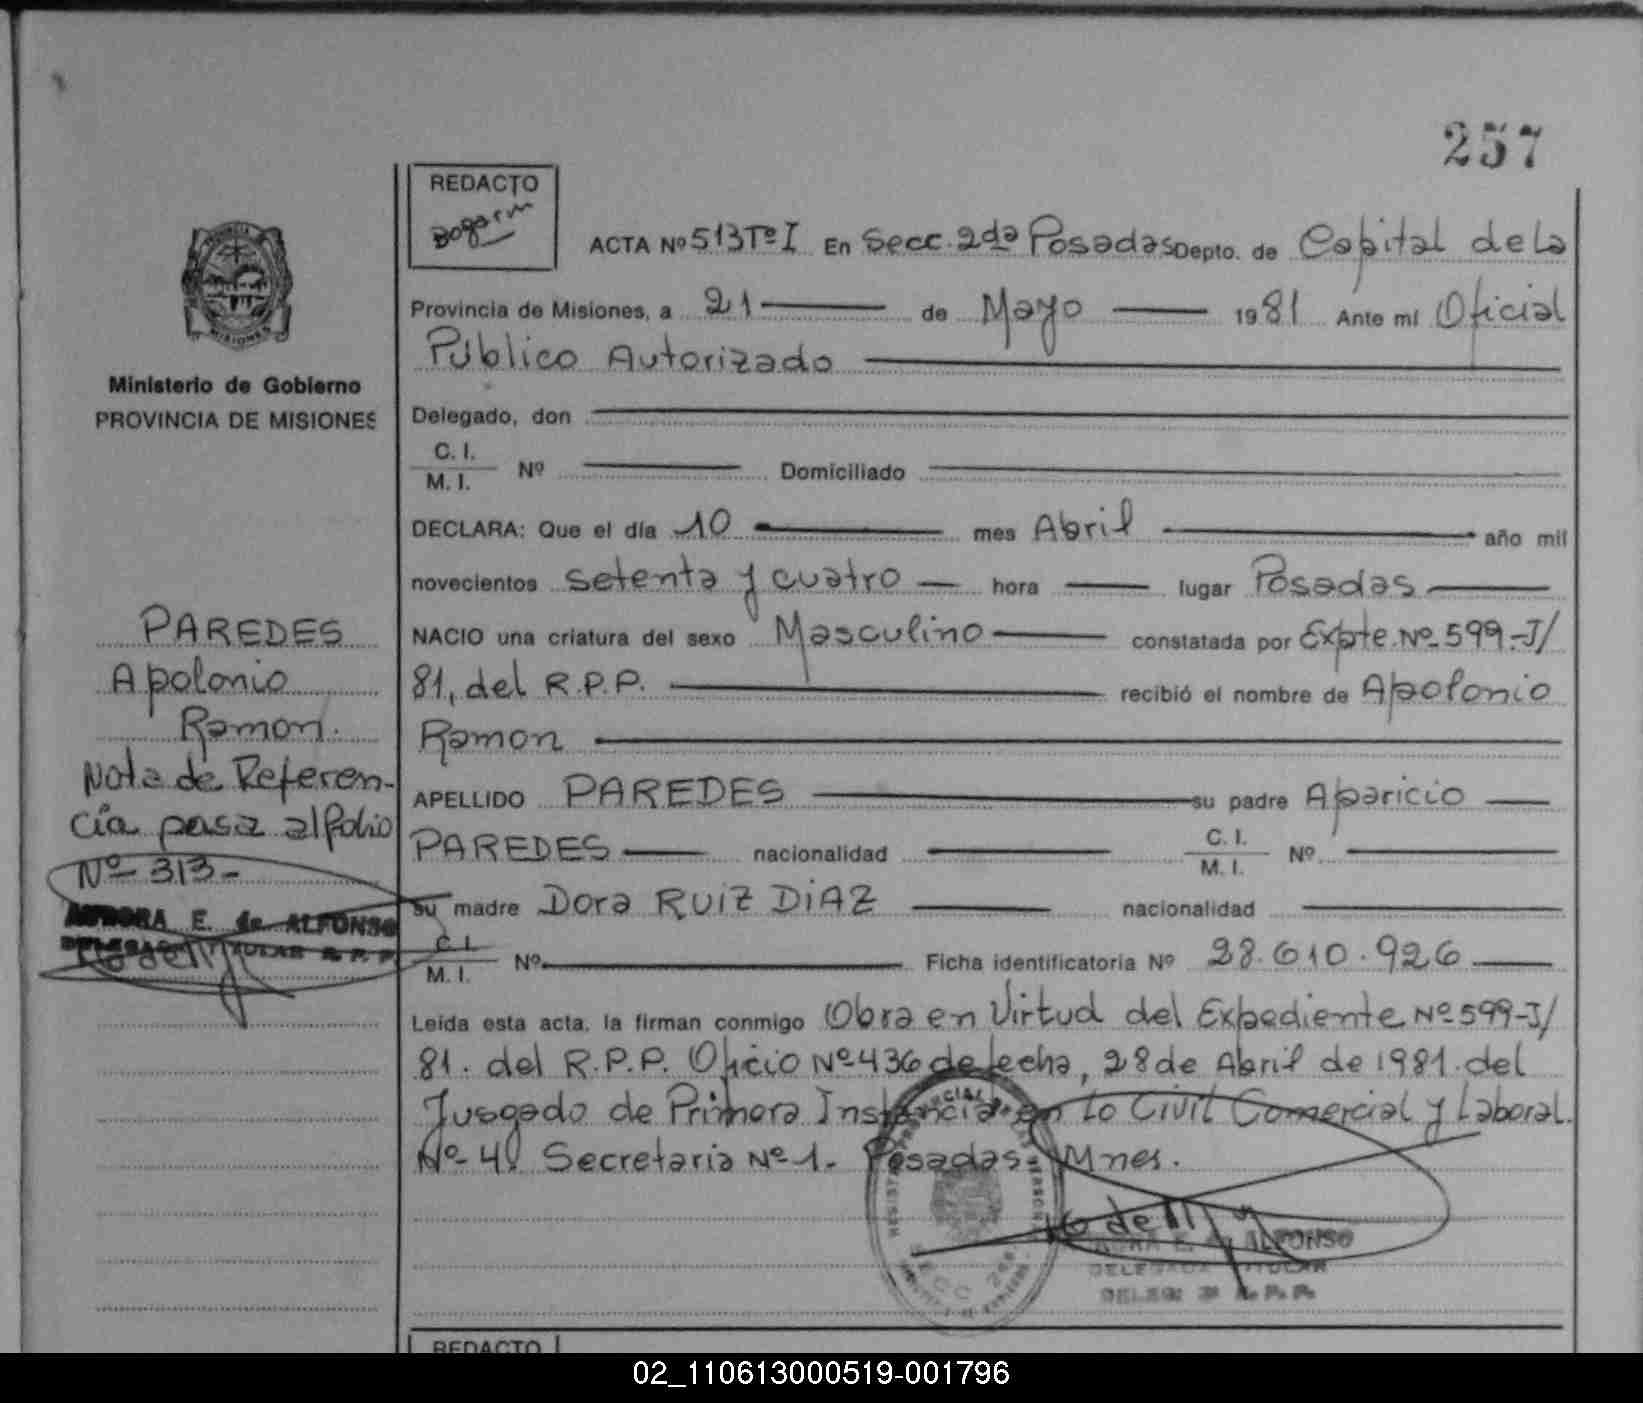 257
REDACTO
Bogarm
ACTA Nº 513 Tº I En Secc. 2da Posadas Depto. de Capital de la
Provincia de Misiones, a 21 de Mayo 1981 Ante mi Oficial
Público Autorizado
Delegado, don
C. I.
M. I. Nº Domiciliado
DECLARA: Que el día 10 mes Abril año mil
novecientos setenta y cuatro hora lugar Posadas
NACIO una criatura del sexo Masculino constatada por Expte. Nº 599-J/
81, del R.P.P. recibió el nombre de Apolonio
Ramon
APELLIDO PAREDES su padre Aparicio
PAREDES nacionalidad C. I. M. I. Nº
su madre Dora RUIZ DIAZ nacionalidad
C. I.
M. I. Nº Ficha identificatoria Nº 28.610.926
Leída esta acta, la firman conmigo Obra en Virtud del Expediente Nº 599-J/
81. del R.P.P. Oficio Nº 436 de fecha, 28 de Abril de 1981. del
Jusgado de Primera Instancia en lo Civil Comercial y Laboral
Nº 4. Secretaria Nº 1. Posadas - Mnes.
E. ALFONSO
DELEGADA TITULAR
R. P. P.
PROVINCIA
MISIONES
Ministerio de Gobierno
PROVINCIA DE MISIONES
PAREDES
Apolonio
Ramon.
Nota de Referen-
cia pasa al folio
Nº 313-
AURORA E. de ALFONSO
DELEGADA TITULAR R. P. P.
REDACTO
02_110613000519-001796